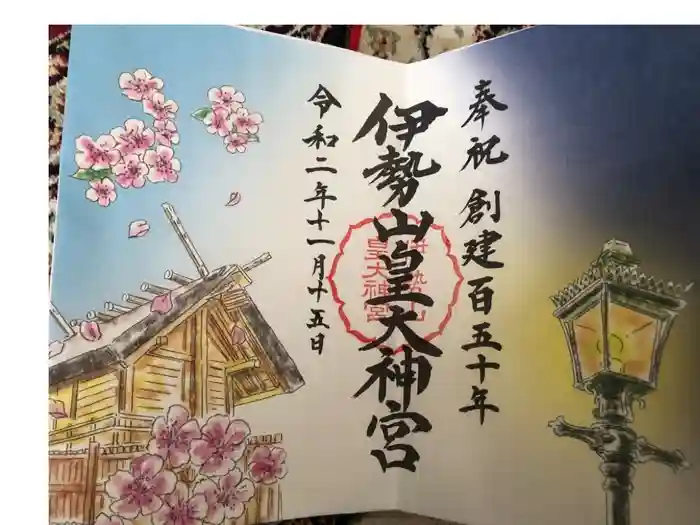 奉祝 創建百五十年
伊勢山皇大神宮
令和二年十一月十五日
伊勢山
皇大神宮